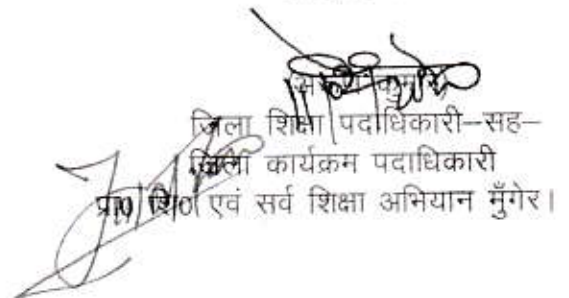 कुमार
जिला शिक्षा पदाधिकारी–सह–
जिला कार्यक्रम पदाधिकारी
प्रा० शि० एवं सर्व शिक्षा अभियान मुँगेर।